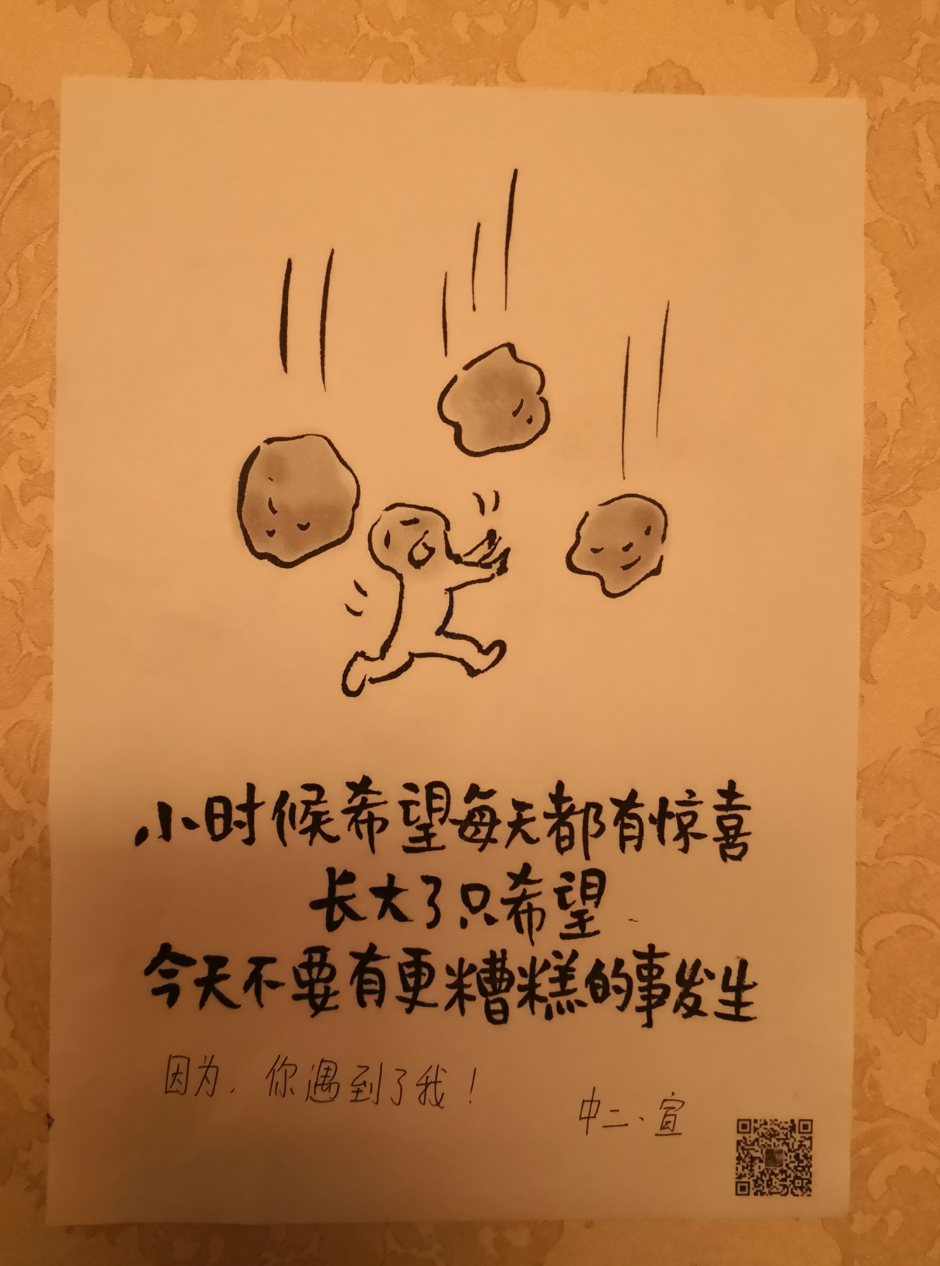 小时候希望每天都有惊喜
长大了只希望
今天不要有更糟糕的事发生
因为，你遇到了我！
中二、宣